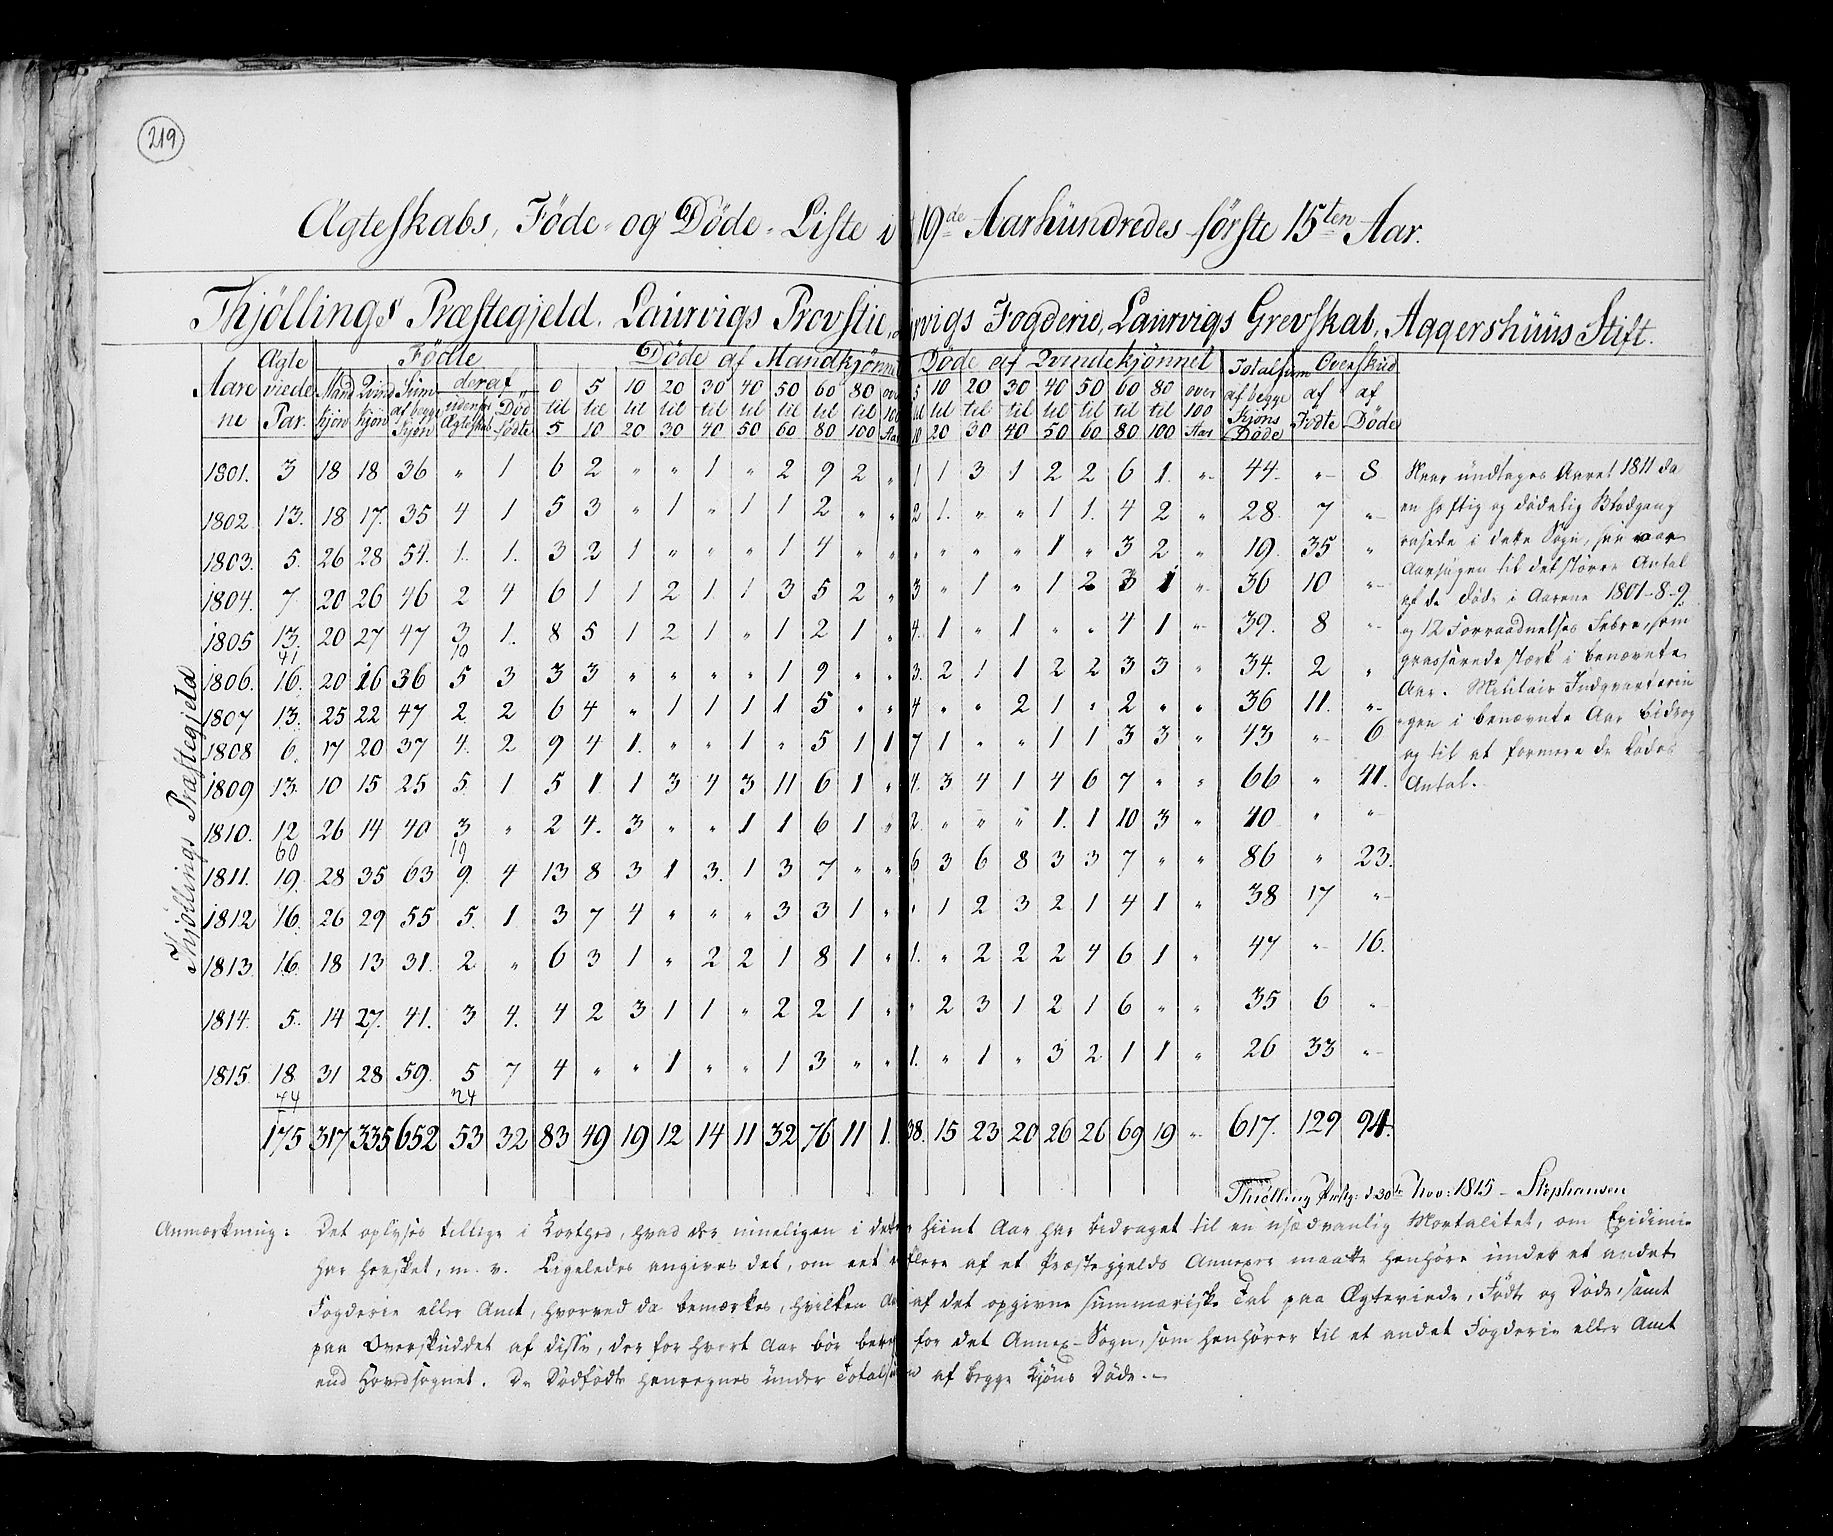 219
Ægteskabs, Föde- og Döde-Liste i 19de Aarhündredes förste 15ten Aar.
Thjöllings Præstegjeld. Laurvigs Provstie, rvigs Fogderie, Laurvigs Grevskab, Aggershüüs Stift.
Aarene | Ægteviede Par. | Födte | Döde af Mandkjønnet | Döde af Qvindekjønnet | Totalsum af begge Kjöns Döde | Overskud af Födte | af Döde
Mandkjön | Qvindkjön | Sum af begge Kjön | deraf | uden for Ægteskab | Dödfödte | 0 til 5 | 5 til 10 | 10 til 20 | 20 til 30 | 30 til 40 | 40 til 50 | 50 til 60 | 60 til 80 | 80 til 100 | over 100 Aar | 5 til 10 | 10 til 20 | 20 til 30 | 30 til 40 | 40 til 50 | 50 til 60 | 60 til 80 | 80 til 100 | over 100 Aar
Thjöllings Præstegjeld
1801. 3 18 18 36 " 1 6 2 " " 1 " 2 9 2 " 1 1 3 1 2 2 6 1. " 44. " 8
1802. 13. 18 17. 35 4 1 5 3 " 1 " 1 1 2 " " 2 1. " " 1 1. 4 2 " 28. 7 "
1803. 5. 26 28 54. 1. 1. 3 2 1 " " " 1 4 " " " " " " 1 " 3 2 " 19. 35 "
1804. 7 20 26 46 2 4 6 1 1 2 1 1 3 5 2 " 3 " 1 " 1 2 3 1 " 36 10 "
1805 13. 20 27 47 3 1. 8 5 1 2 1 " 1 2 1 " 4. 1 " 1 " " 4 1 " 39. 8 "
41 10
1806. 16. 20 16 36 5 3 3 3 " " " " 1 9 " " 3. 2 1 1 2 2 3 3 " 34. 2 "
1807 13. 25 22 47 2 2 6 4 " 1 1 1 1 5 " " 4 " " 2 1 " 2 " " 36 11. "
1808 6. 17 20 37 4. 2 9 4 1. " " 1 " 5 1 1 7 1 " " 1 1 3 3 " 43 " 6
1809 13 10 15 25 5 1 5 1 1 3 4 3 11 6 1 " 4. 3 4 1 4 6 7 " " 66 " 41.
1810. 12 26 14 40 3 " 2 4. 3 " " 1 1 6 1 " 2. " " " 1. 1 10 3 " 40 " "
60 19
1811. 19. 28 35 63 9. 4 13 8 3 1 3. 1 3 7 " " 6 3 6 8 3 3 7 " " 86 " 23.
1812 16. 26 29 55 5. 1 3 7 4 " " " 3 3 1 " " 1 2 3 2 1 4 1 " 38 17 "
1813. 16. 18 13 31. 2 " 6 3 1 " 2 2 1 8 1 " 1. " 2 2 2 4 6 1 " 47 " 16.
1814. 5. 14 27. 41. 3 4. 4 2 3 1 1 " 2 2 1 " " 2 3 1 2 1 6 " " 35 6 "
1815. 18. 31 28 59. 5 7 4 " " 1 " " 1 3 " " 1. " 1 " 3 2 1 1 " 26 33 "
74 24
175 317 335 652 53 32 83 49 19 12 14 11 32 76 11 1. 38. 15 23 20 26 26 69 19 " 617. 129 94.
Naar ündtages Aaret 1811 da
en heftig og dödelig Blodgang
rasede i dette Sogn, saa var
Aarsagen til det större Antal
af de Döde i Aarene 1801-8-9.
og 12 Forraadnelses Febre, som
grasserede stærk i benævnte
Aar. Militair Indqvarterin
gen i benævnte Aar bidrog
og til at formere de Dödes
Antal.
Thiölling Præstg: d 30te Nov: 1815 - Stephansen
Anmærkning: Det oplyses tillige i Korthed, hvad der rimeligen i det hiint Aar har bidraget til en usædvanlig Mortalitet, om Epidimie
har hersket, m. v. Ligeledes angives det, om eet flere af et Præstegjelds Annexer maatte henhöre ünder et andet
Fogderie eller Amt, hvorved da bemærkes, hvilken af det opgivne summariske Tal paa Ægteviede, Födte og Döde, samt
paa Overskuddet af disse, der for hvert Aar bör for det Annex-Sogn, som henhörer til et andet Fogderie eller Amt
end Hovedsognet. De Dödfödte henregnes ünder Totalsum af begge Kjöns Döde.-